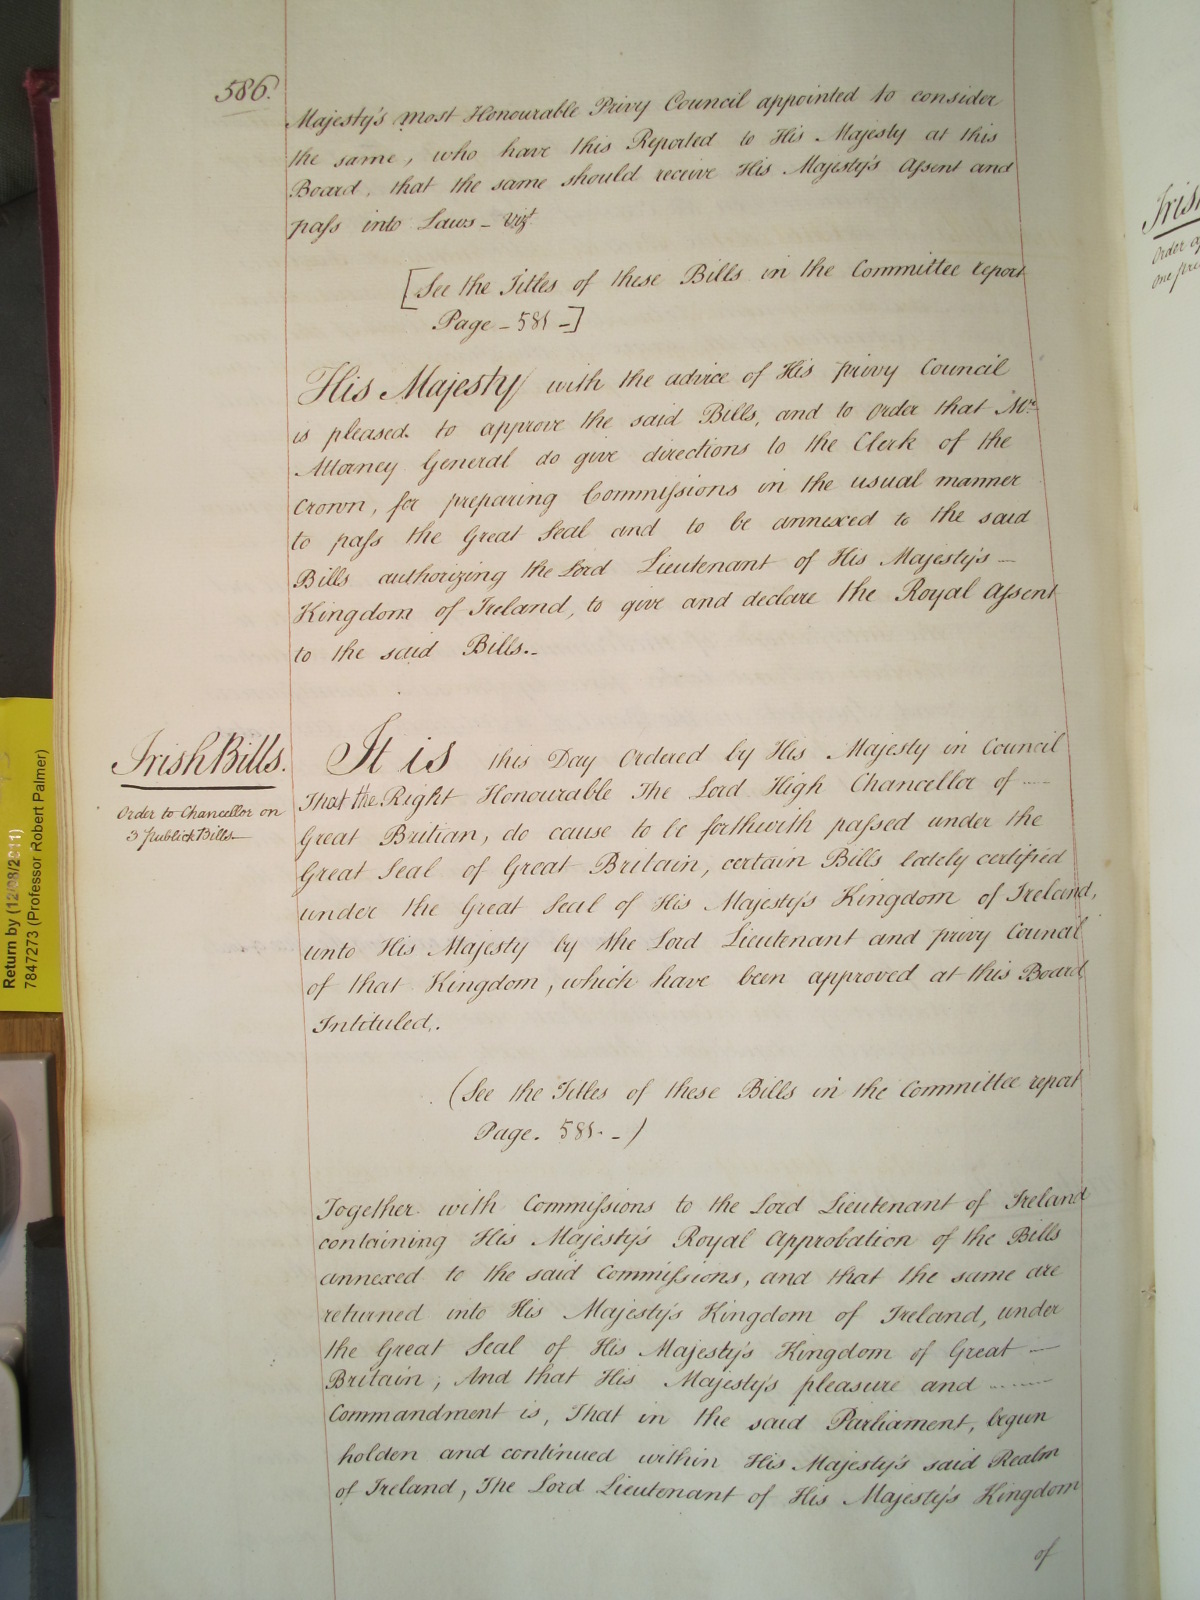 586.
Majesty's most Honourable Privy Council appointed to consider
the same, who have this Reported to His Majesty at this
Board, that the same should receive His Majesty's Assent and
pass into Laws – Vizt.
[See the Titles of these Bills in the Committee report
Page – 581 –]
His Majesty with the advice of His privy Council
is pleased to approve the said Bills, and to order that Mr.
Attorney General do give directions to the Clerk of the
Crown, for preparing Commissions in the usual manner
to pass the Great Seal and to be annexed to the said
Bills authorizing the Lord Lieutenant of His Majesty's –
Kingdom of Ireland, to give and declare the Royal Assent
to the said Bills. –
Irish Bills.
Order to Chancellor on
3 Publick Bills
It is this Day Ordered by His Majesty in Council
That the Right Honourable The Lord High Chancellor of –
Great Britian, do cause to be forthwith passed under the
Great Seal of Great Britain, certain Bills lately certified
under the Great Seal of His Majesty's Kingdom of Ireland,
unto His Majesty by the Lord Lieutenant and privy Council
of that Kingdom, which have been approved at this Board
Intituled.
(See the Titles of these Bills in the Committee report
Page. 581. –)
Together with Commissions to the Lord Lieutenant of Ireland
containing His Majesty's Royal Approbation of the Bills
annexed to the said Commissions, and that the same are
returned into His Majesty's Kingdom of Ireland, under
the Great Seal of His Majesty's Kingdom of Great –
Britain; And that His Majesty's pleasure and
Commandment is, That in the said Parliament, begun
holden and continued within His Majesty's said Realm
of Ireland, The Lord Lieutenant of His Majesty's Kingdom
of
Return by (12/08/2011)
7847273 (Professor Robert Palmer)
Irish
Order
one